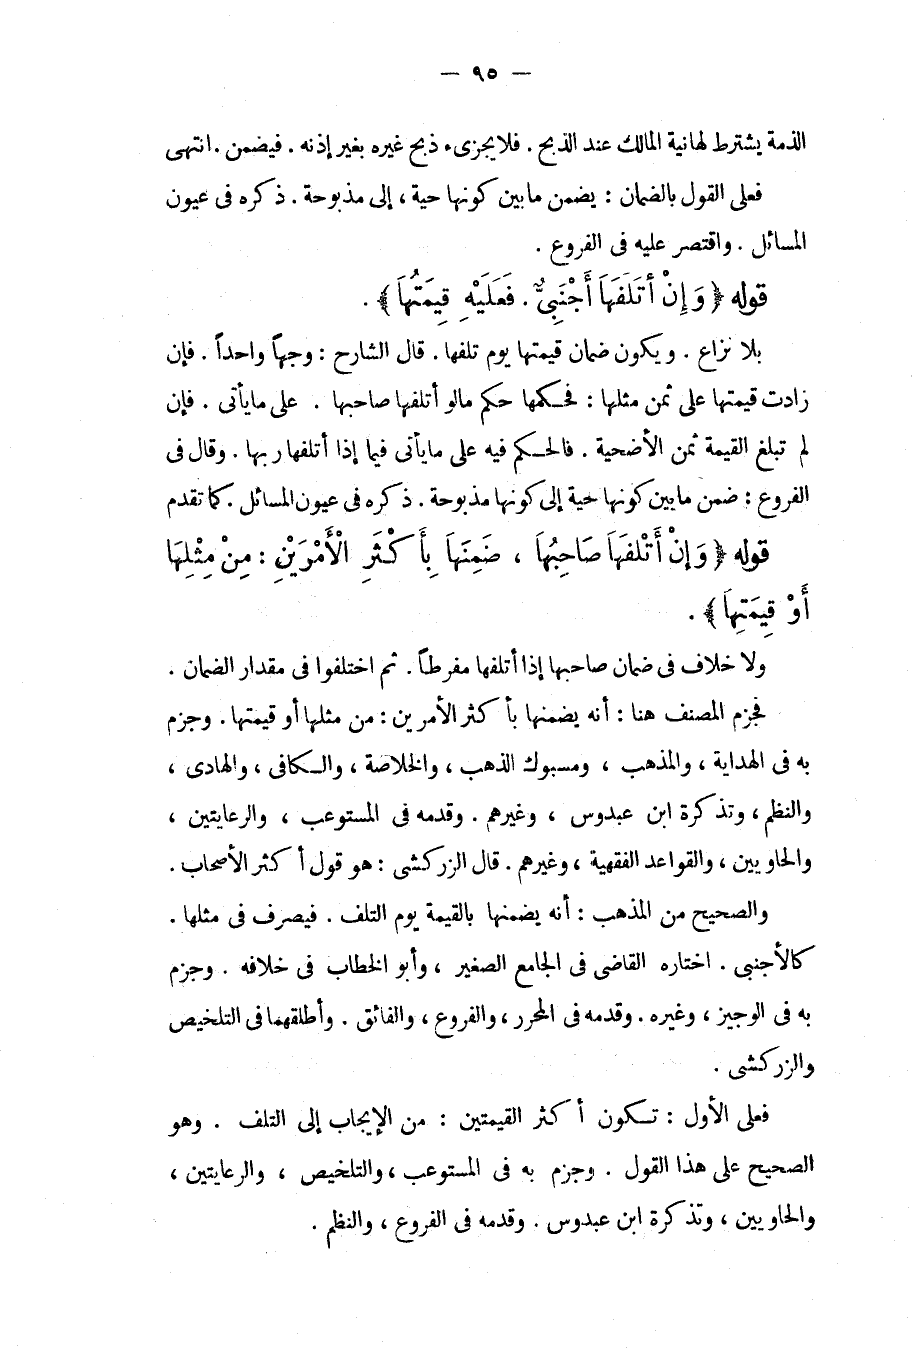 — ٩٥ —
الذمة يشترط لها نية المالك عند الذبح . فلا يجزىء ذبح غيره بغير إذنه . فيضمن . انتهى
فعلى القول بالضمان : يضمن ما بين كونها حية ، إلى مذبوحة . ذكره فى عيون
المسائل . واقتصر عليه فى الفروع .
قوله ﴿ وَإِنْ أتَلَفَهَا أَجْنَبِىٌّ . فَعَلَيْهِ قِيمَتُهَا ﴾ .
بلا نزاع . ويكون ضمان قيمتها يوم تلفها . قال الشارح : وجهاً واحداً . فإن
زادت قيمتها على ثمن مثلها : فحكمها حكم مالو أتلفها صاحبها . على ما يأتى . فإن
لم تبلغ القيمة ثمن الأضحية . فالحكم فيه على ما يأتى فيما إذا أتلفها ربها . وقال فى
الفروع : ضمن ما بين كونها حية إلى كونها مذبوحة . ذكره فى عيون المسائل . كما تقدم
قوله ﴿ وَإِنْ أَتْلفَهَا صَاحِبُهَا ، ضَمِنَهَا بِأَكْثَرِ الْأَمْرَيْنِ : مِنْ مِثْلِهَا
أَوْ قِيمَتِهَا ﴾ .
ولا خلاف فى ضمان صاحبها إذا أتلفها مفرطاً . ثم اختلفوا فى مقدار الضمان .
فجزم المصنف هنا : أنه يضمنها بأكثر الأمرين : من مثلها أو قيمتها . وجزم
به فى الهداية ، والمذهب ، ومسبوك الذهب ، والخلاصة ، والكافى ، والهادى ،
والنظم ، وتذكرة ابن عبدوس ، وغيرهم . وقدمه فى المستوعب ، والرعايتين ،
والحاويين ، والقواعد الفقهية ، وغيرهم . قال الزركشى : هو قول أكثر الأصحاب .
والصحيح من المذهب : أنه يضمنها بالقيمة يوم التلف . فيصرف فى مثلها .
كالأجنبى . اختاره القاضى فى الجامع الصغير ، وأبو الخطاب فى خلافه . وجزم
به فى الوجيز ، وغيره . وقدمه فى المحرر ، والفروع ، والفائق . وأطلقهما فى التلخيص
والزركشى .
فعلى الأول : تكون أكثر القيمتين : من الإيجاب إلى التلف . وهو
الصحيح على هذا القول . وجزم به فى المستوعب ، والتلخيص ، والرعايتين ،
والحاويين ، وتذكرة ابن عبدوس . وقدمه فى الفروع ، والنظم .